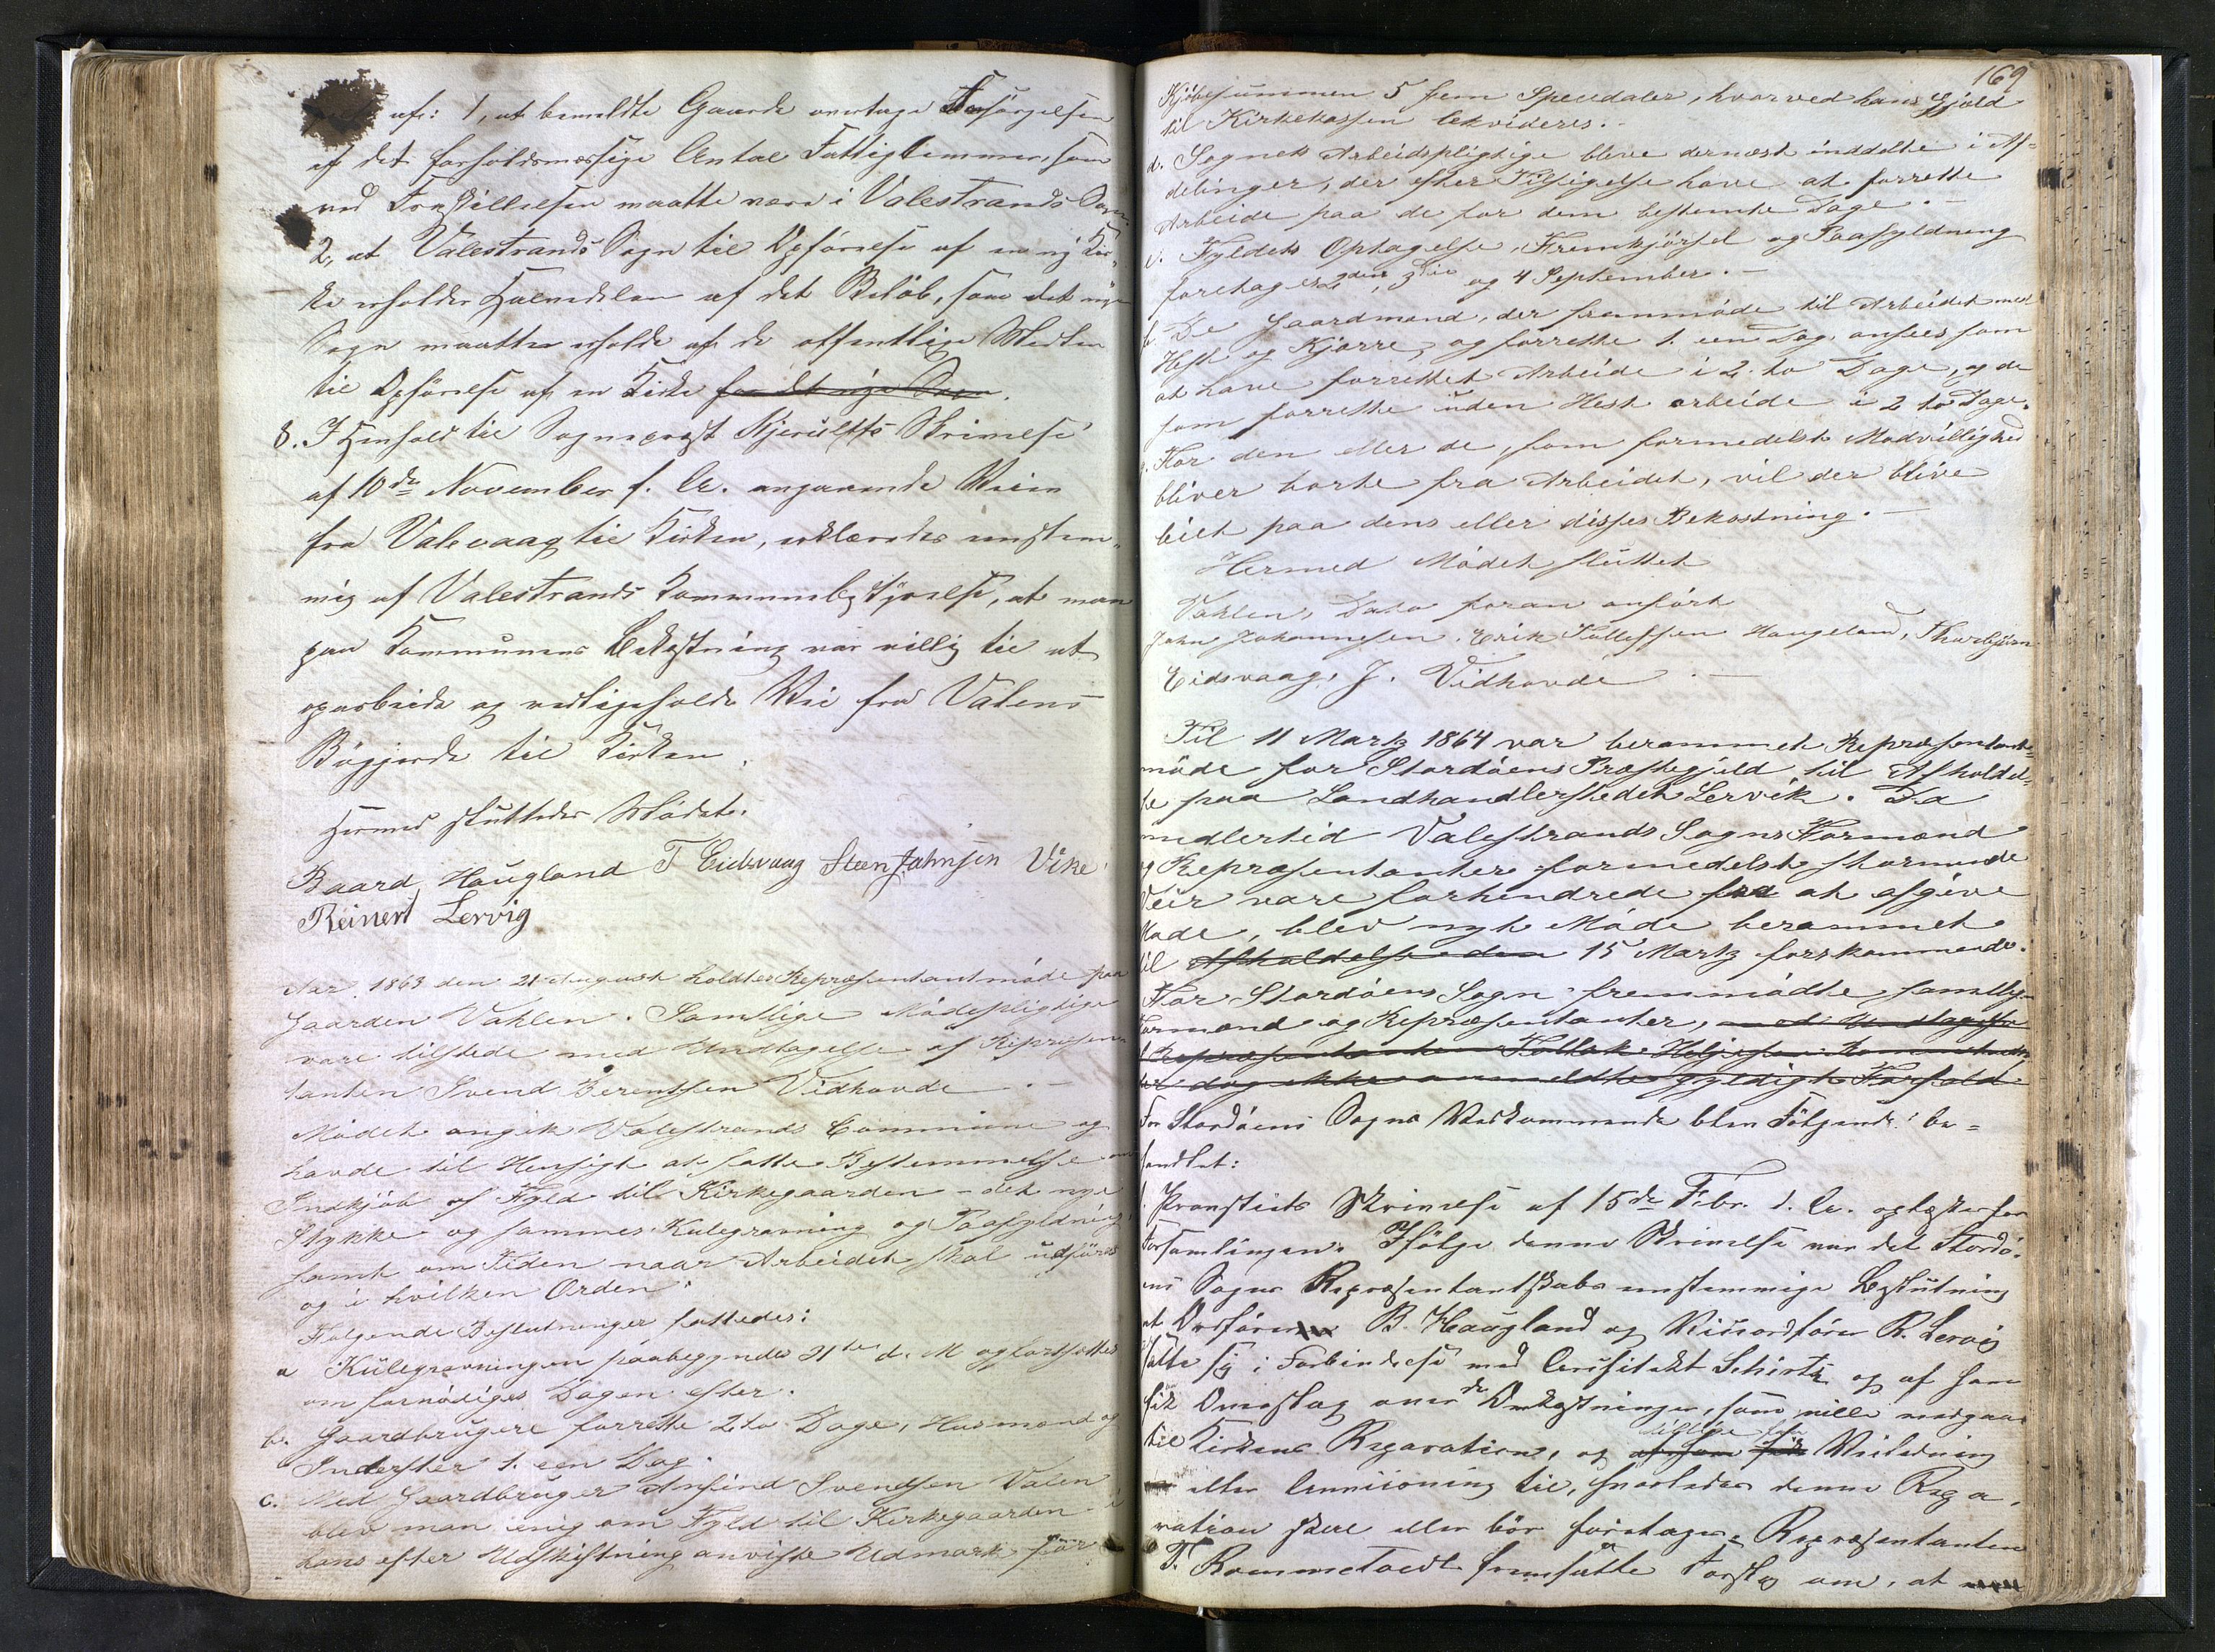 af: 1, at bemeldte Gaarde overtage Forsørgelsen
af det forholdsmæssige Antal Fattiglemmer, som
ved Fraskillelsen maatte være i Valestrands Sogn
2, at Valestrands Sogn til Opførelse af en ny Kir-
ke erholder Halvdelen af det Beløb, som det nye
Sogn maatte erholde af de offentlige Midler
til Opførelse af en Kirke for det nye Sogn.
8. I Henhold til Sognepræst Kjerulfs Skrivelse
af 10de November f. A. angaaende Veien
fra Valevaag til Kirken, erklæredes eenstem-
mig af Valestrands Kommunebestyrelse, at man
paa Kommunens Bekostning var villig til at
oparbeide og vedligeholde Vei fra Valens
Bøgjerde til Kirken.
Hermed sluttedes Mødet.
Baard Haugland T Eidsvaag Steen Johnsen Vike
Reinert Lervig
Aar 1863 den 21 August holdtes Repræsentantmøde paa
Gaarden Vahlen. Samtlige Mødepligtige
vare tilstede med Undtagelse af Repræsen-
tanten Svend Berentsen Vidhovde. —
Mødet angik Valestrands Commune og
havde til Hensigt at fatte Bestemmelse om
Indkjøb af Fyld til Kirkegaarden – det nye
Stykke og sammes Kulegravning og Paafyldning
samt om Tiden naar Arbeidet skal udføres
og i hvilken Orden.
Følgende Beslutninger fattedes:
a Kulegravningen paabegyndes 31te d. M og fortsættes
om fornødiges Dagen efter.
b. Gaardbrugere forrette 2 to Dage, Husmænd og
Inderster 1. een Dag.
c. Med Gaardbruger Anfind Svendsen Valen
blev man enig om Fyld til Kirkegaarden i
hans efter Udskiftning anviste Udmark for
169
Kjøbesummen 5 fem Speciedaler, hvorved hans Gjæld
til Kirkekassen likvideres.
d. Sognets Arbeidspligtige bleve dernæst inddelte i Af-
delinger, der efter Tilsigelse have at forrette
Arbeide paa de for dem bestemte Dage. —
e. Fyldets Optagelse, Fremkjørsel og Paafyldning
foretages 2den, 3die og 4 September. —
f. De Gaardmænd, der fremmøde til Arbeidet med
Hest og Kjærre og forrette 1. een Dag ansees som
at have forrettet Arbeide i 2. to Dage, og de
som forrette uden Hest arbeide i 2 to Dage.
g. For den eller de, som formedelst Modvillighed
bliver borte fra Arbeidet, vil der blive
leiet paa dens eller disses Bekostning. —
Hermed Mødet sluttet
Vahlen, Dato foran anført
John Johannesen. Erik Tollefsen Haugeland, Thorbjørn
Eidsvaag, J. Vidhovde —
Til 11 Martz 1864 var berammet Repræsentant-
møde for Stordøens Præstegjeld til Afholdel-
se paa Landhandlerstedet Lervik. Da
imedlertid Valestrands Sogns Formænd
og Repræsentanter formedelst stormende
Veir vare forhindrede fra at afgive
Møde, blev nyt Møde berammet
til Afholdelse den 15 Martz førstkommende.
For Stordøens Sogn fremmødte samtlige
Formænd og Repræsentanter, med Undtagelse
af Repræsentanten Tollak Heljesen
der dog ikke anmeldte gyldigt Forfald
For Stordøens Sogns Vedkommende blev Følgende be-
handlet:
1. Provstiets Skrivelse af 15de Febr. d. A. oplæstes for
Forsamlingen. Ifølge denne Skrivelse var det Stordø-
ens Sogns Repræsentantskabs eenstemmige Beslutning
at Ordføreren B. Haugland og Viceordfører R. Lervig
sætte sig i Forbindelse med Architekt Schirtz og af ham
fik Overslag over de Omkostninger, som ville medgaae
til Kirkens Reparation, og tillige faa af ham fik Veiledning
eller Anviisning til, hvorledes denne Repa-
ration skeer eller bør foretages. Repræsentanten
T. Rommetvedt fremsatte Forslag om, at